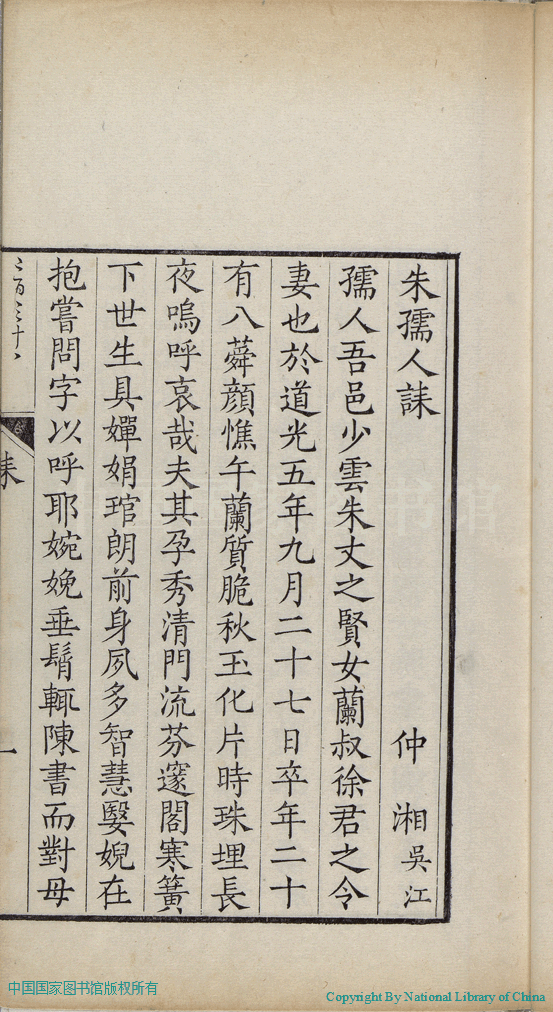 朱孺人誄
仲湘吳江
孺人吾邑少雲朱丈之賢女蘭叔徐君之令
妻也於道光五年九月二十七日卒年二十
有八蕣顏憔午蘭質脆秋玉化片時珠埋長
夜嗚呼哀哉夫其孕秀清門流芬邃閣寒簧
下世生具嬋娟琯朗前身夙多智慧嫛婗在
抱嘗問字以呼耶婉娩垂髫輒陳書而對母
誄
一
中国国家图书馆版权所有
Copyright By National Library of China